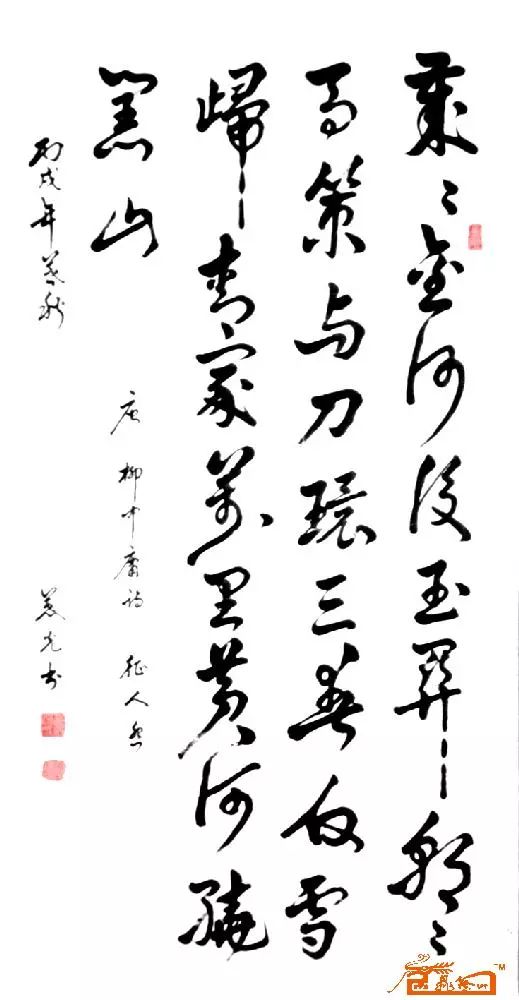 歲々金河復玉關朝々
馬策与刀環三春白雪
歸青冢萬里黄河繞
黑山
唐 柳中庸詩 征人怨
丙戌年 秋
光书